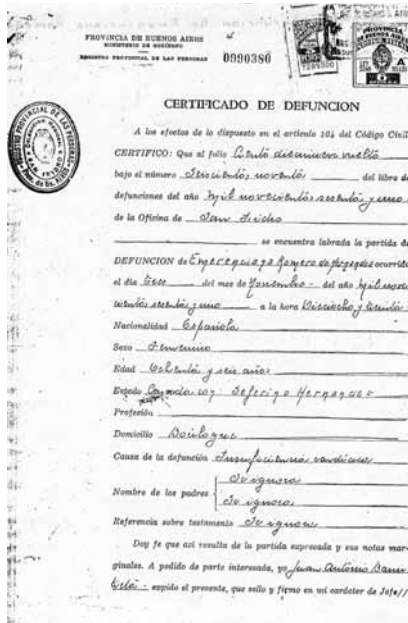 PROVINCIA DE BUENOS AIRES
MINISTERIO DE GOBIERNO
REGISTRO PROVINCIAL DE LAS PERSONAS
0990380
PROVINCIA
REGISTRO PROVINCIAL DE LAS PERSONAS
CERTIFICADO DE DEFUNCION
A los efectos de lo dispuesto en el artículo 104 del Código Civil
CERTIFICO: Que al folio Ciento diecinueve vuelto
bajo el número Seiscientos noventa del libro de
defunciones del año Mil novecientos sesenta y uno
de la Oficina de San Isidro
se encuentra labrada la partida de
DEFUNCION de Romero de ocurrida
el día del mes de Noviembre del año Mil nove
cientos sesenta y uno a la hora Dieciocho y
Nacionalidad Española
Sexo Femenino
Edad Ochenta y seis años
Estado Casada con:
Profesión
Domicilio Boulogne
Causa de la defunción Insuficiencia cardíaca
Nombre de los padres
Se ignora
Se ignora
Referencia sobre testamento Se ignora
Doy fe que así resulta de la partida expresada y sus notas mar-
ginales. A pedido de parte interesada, yo Juan Antonio
expido el presente, que sello y firmo en mi carácter de Jefe//